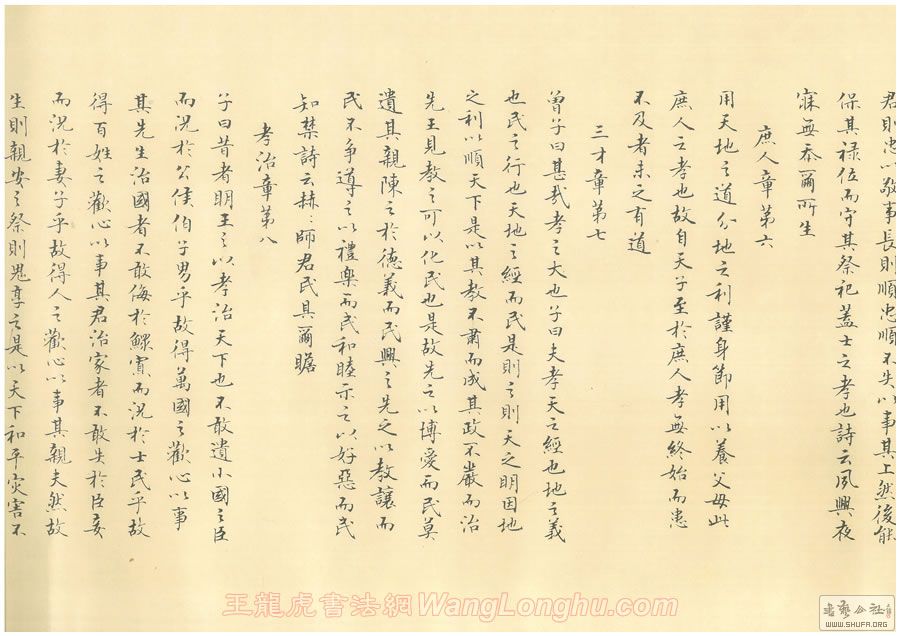 君則忠以敬事長則順忠順不失以事其上然後能
保其祿位而守其祭祀蓋士之孝也詩云夙興夜
寐無忝爾所生
庶人章第六
用天地之道分地之利謹身節用以養父母此
庶人之孝也故自天子至於庶人孝無終始而患
不及者未之有道
三才章第七
曾子曰甚哉孝之大也子曰夫孝天之經也地之義
也民之行也天地之經而民是則之則天之明因地
之利以順天下是以其教不肅而成其政不嚴而治
先王見教之可以化民也是故先之以博愛而民莫
遺其親陳之於德義而民興之先之以敬讓而
民不爭導之以禮樂而民和睦示之以好惡而民
知禁詩云赫〻師君民具爾瞻
孝治章第八
子曰昔者明王之以孝治天下也不敢遺小國之臣
而況於公侯伯子男乎故得萬國之歡心以事
其先生治國者不敢侮於鰥寡而況於士民乎故
得百姓之歡心以事其君治家者不敢失於臣妾
而況於妻子乎故得人之歡心以事其親夫然故
生則親安之祭則鬼享之是以天下和平災害不
王龍虎書法網WangLonghu.com
書藝公社
WWW.SHUFA.ORG